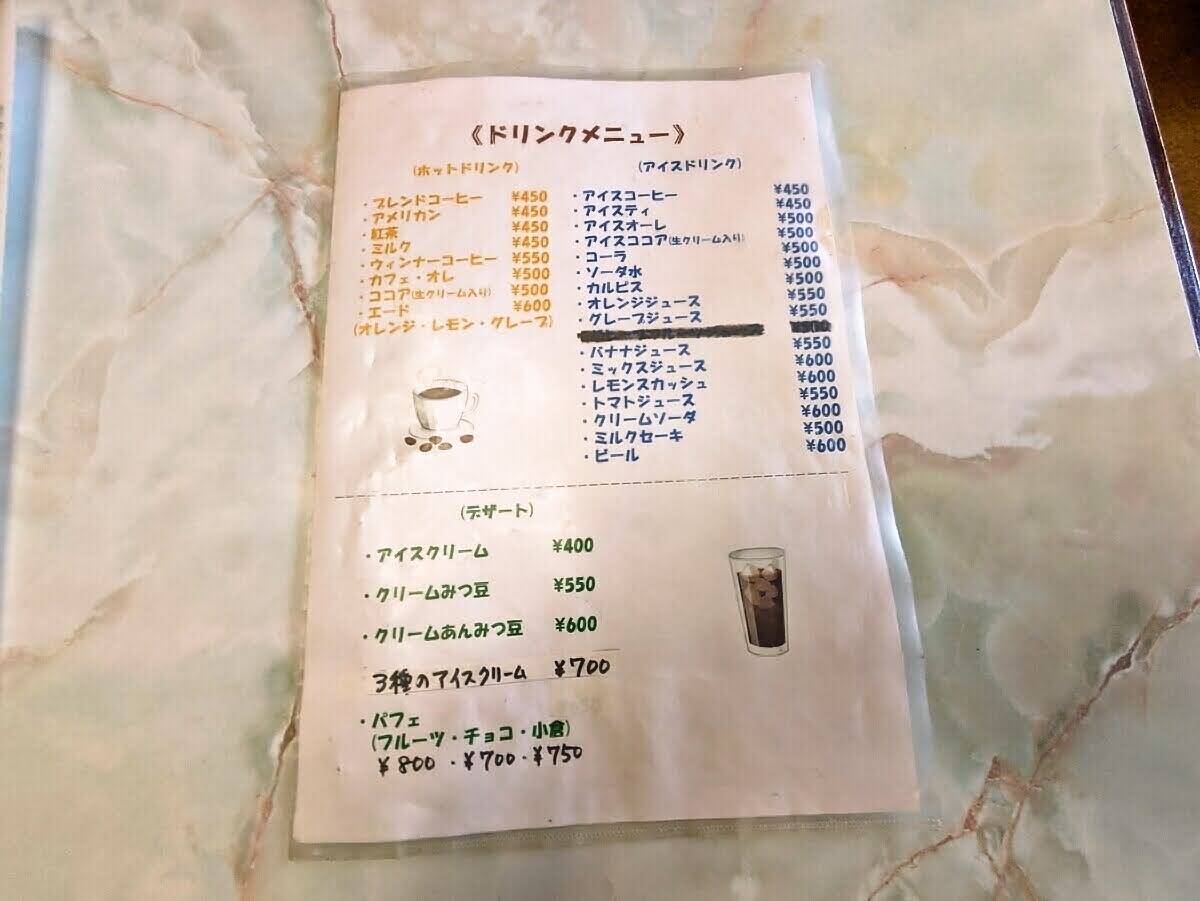 《ドリンクメニュー》
(ホットドリンク)
・ブレンドコーヒー ¥450
・アメリカン ¥450
・紅茶 ¥450
・ミルク ¥450
・ウィンナーコーヒー ¥550
・カフェ・オレ ¥500
・ココア(生クリーム入り) ¥500
・エード ¥600
(オレンジ・レモン・グレープ)
(アイスドリンク)
・アイスコーヒー ¥450
・アイスティ ¥450
・アイスオーレ ¥500
・アイスココア(生クリーム入り) ¥500
・コーラ ¥500
・ソーダ水 ¥500
・カルピス ¥500
・オレンジジュース ¥550
・グレープジュース ¥550
・バナナジュース ¥550
・ミックスジュース ¥600
・レモンスカッシュ ¥600
・トマトジュース ¥550
・クリームソーダ ¥600
・ミルクセーキ ¥500
・ビール ¥600
(デザート)
・アイスクリーム ¥400
・クリームみつ豆 ¥550
・クリームあんみつ豆 ¥600
3種のアイスクリーム ¥700
・パフェ
(フルーツ・チョコ・小倉)
¥800・¥700・¥750